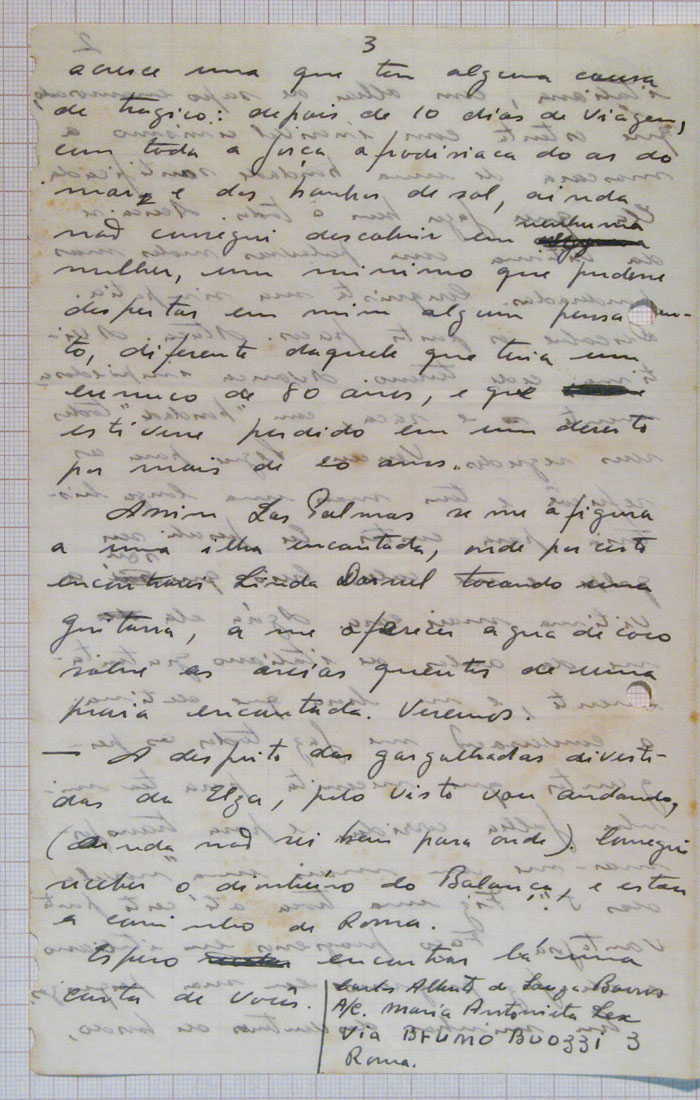 3
acresce uma que tem alguma cousa
de tragico: depois de 10 dias de viagem,
com toda a força afrodisiaca do ar do
mar, e dos banhos de sol, ainda
não consegui descobrir em nenhuma
mulher, um minimo que pudesse
despertar em mim algum pensamen-
to, diferente daquele que teria um
eunuco de 80 anos, e que
estivesse perdido em um deserto
por mais de 20 anos.
Assim Las Palmas se me afigura
a uma ilha encantada, onde por certo
encontrarei Linda Darnel tocando uma
guitarra, a me oferecer agua de coco
sobre as areias quentes de uma
praia encantada. Veremos.
— A despeito das gargalhadas diverti-
das da Elza, pelo visto vou andando,
(ainda não sei bem para onde). Consegui
receber o dinheiro do Balança, e estou
a caminho de Roma.
Espero encontrar lá uma
carta de vocês.
Carlos Alberto de Souza Barros
A/c. Maria Antonieta
Via Bruno Buozzi 3
Roma.
2